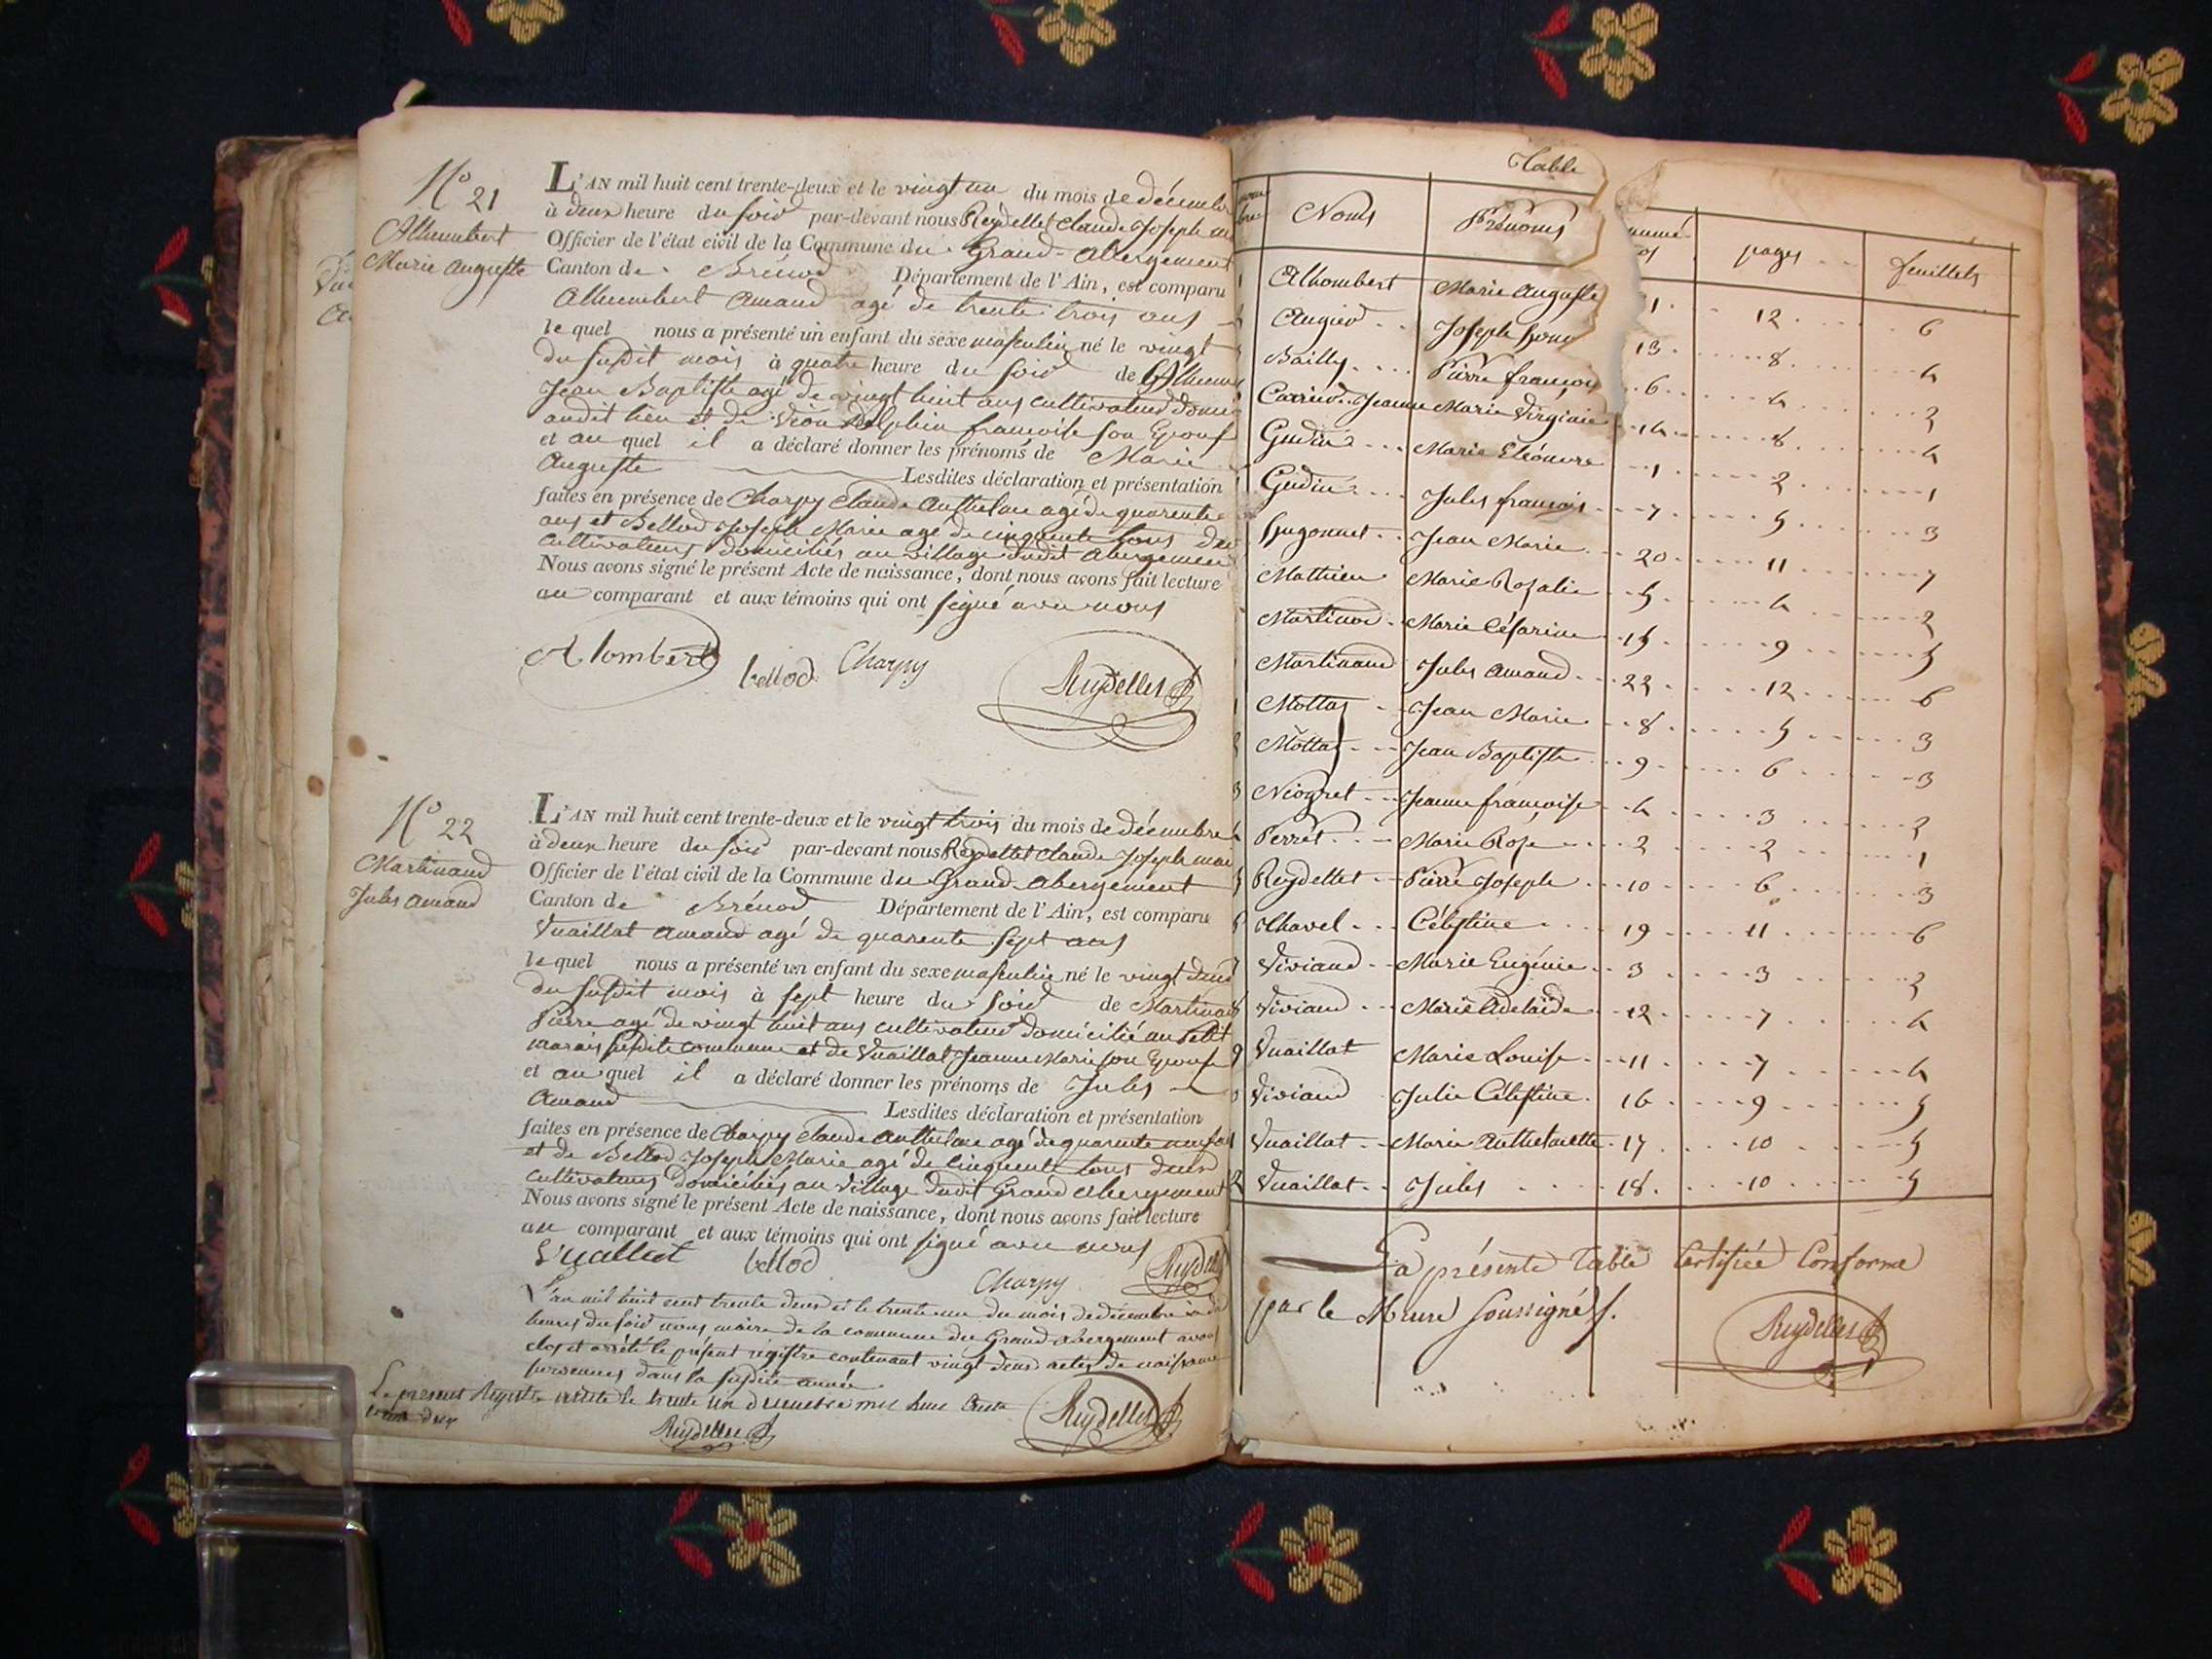 N° 21
Alhumbert
Marie Auguste
L'AN mil huit cent trente-deux et le vingt un du mois de décembre
à deux heure du soir par-devant nous Reydellet Claude Joseph
Officier de l'état civil de la Commune du Grand-abergement
Canton de Brénod Département de l'Ain, est comparu
Alhumbert amand agé de trente trois ans
lequel nous a présenté un enfant du sexe masculin né le vingt
du susdit mois à quatre heure du soir de
Jean Baptiste agé de vingt huit ans cultivateur
audit lieu et de françoise son Epouse
et au quel il a déclaré donner les prénoms de Marie
Auguste Lesdites déclaration et présentation
faites en présence de Charpy Claude Anthelme agé de quarente
ans et Bellod Joseph Marie agé de cinquente tous
cultivateurs domiciliés au village dudit abergement
Nous avons signé le présent Acte de naissance, dont nous avons fait lecture
au comparant et aux témoins qui ont signé avec nous
Alombert bellod Charpy Reydellet
N° 22
Martinand
Jules amand
L'AN mil huit cent trente-deux et le vingt trois du mois de décembre
à deux heure du soir par-devant nous Reydellet Claude Joseph
Officier de l'état civil de la Commune du Grand-abergement
Canton de Brénod Département de l'Ain, est comparu
Vuaillat amand agé de quarente sept ans
lequel nous a présenté un enfant du sexe masculin né le vingt deux
du susdit mois à sept heure du soir de
Pierre agé de vingt huit ans cultivateur domicilié au Petit
marais susdite commune et de Vuaillat Jeanne Marie son Epouse
et au quel il a déclaré donner les prénoms de Jules
Amand Lesdites déclaration et présentation
faites en présence de Charpy Claude Anthelme agé de quarente
et de Bellod Joseph Marie agé de cinquente tous deux
cultivateurs domiciliés au village dudit Grand abergement
Nous avons signé le présent Acte de naissance, dont nous avons fait lecture
au comparant et aux témoins qui ont signé avec nous
Vuallat bellod Charpy
L'an mil huit cent trente deux et le trente un du mois de décembre à
heures du soir nous maire de la commune du Grand abergement avons
clos et arrêté le présent régistre contenant vingt deux actes de naissance
dans la susdite année
Le présent Registre arrêté le trente un décembre mil huit cent
trente deux
Reydellet Reydellet
Table
Noms Prénoms pages feuillets
Alhombert Marie Auguste 1 12 6
Augier Joseph 13 8 4
Bailly Pierre françois 6 4 2
Carrier Jeanne Marie Virginie 14 8 4
Gudin Marie Eléonore 1 2 1
Gudin Jules françois 7 5 3
hugonnet Jean Marie 20 11 7
Mathieu Marie Rosalie 5 4 2
Martinod Marie Césarine 15 9 5
Martinand Jules amand 22 12 6
Mottaz Jean Marie 8 5 3
Mottaz Jean Baptiste 9 6 3
Niogret Jeanne françoise 4 3 2
Perret Marie Rose 2 2 1
Reydellet Pierre Joseph 10 6 3
Chavel Célestine 19 11 6
Viviand Marie Eugénie 3 3 2
Viviand Marie Adelaïde 12 7 4
9 Vuaillat Marie Louise 11 7 4
Viviand Julie Célestine 16 9 5
Vuaillat Marie Anthelmette 17 10 5
Vuaillat Jules 18 10 5
La présente Table Certifiée Conforme
par le Meure soussigné
Reydellet